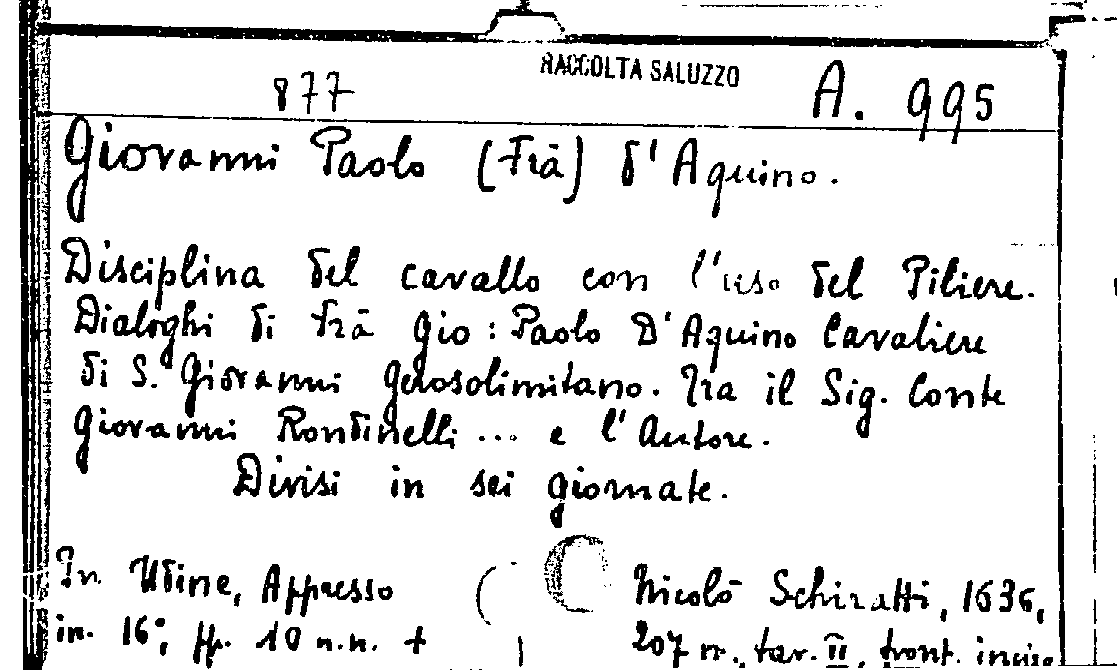 RACCOLTA SALUZZO
877 A. 995
Giovanni Paolo (Frà) d'Aquino.
Disciplina del cavallo con l'uso del Piliere.
Dialoghi di Frà Gio: Paolo D'Aquino Cavaliere
di S. Giovanni Gerosolimitano. Tra il Sig. Conte
Giovanni Rondinelli ... e l'Autore.
Divisi in sei giornate.
In Udine, Appresso Nicolò Schiratti, 1636,
in. 16°, pp. 10 n.n. + 207 n., tav. II, front. incise